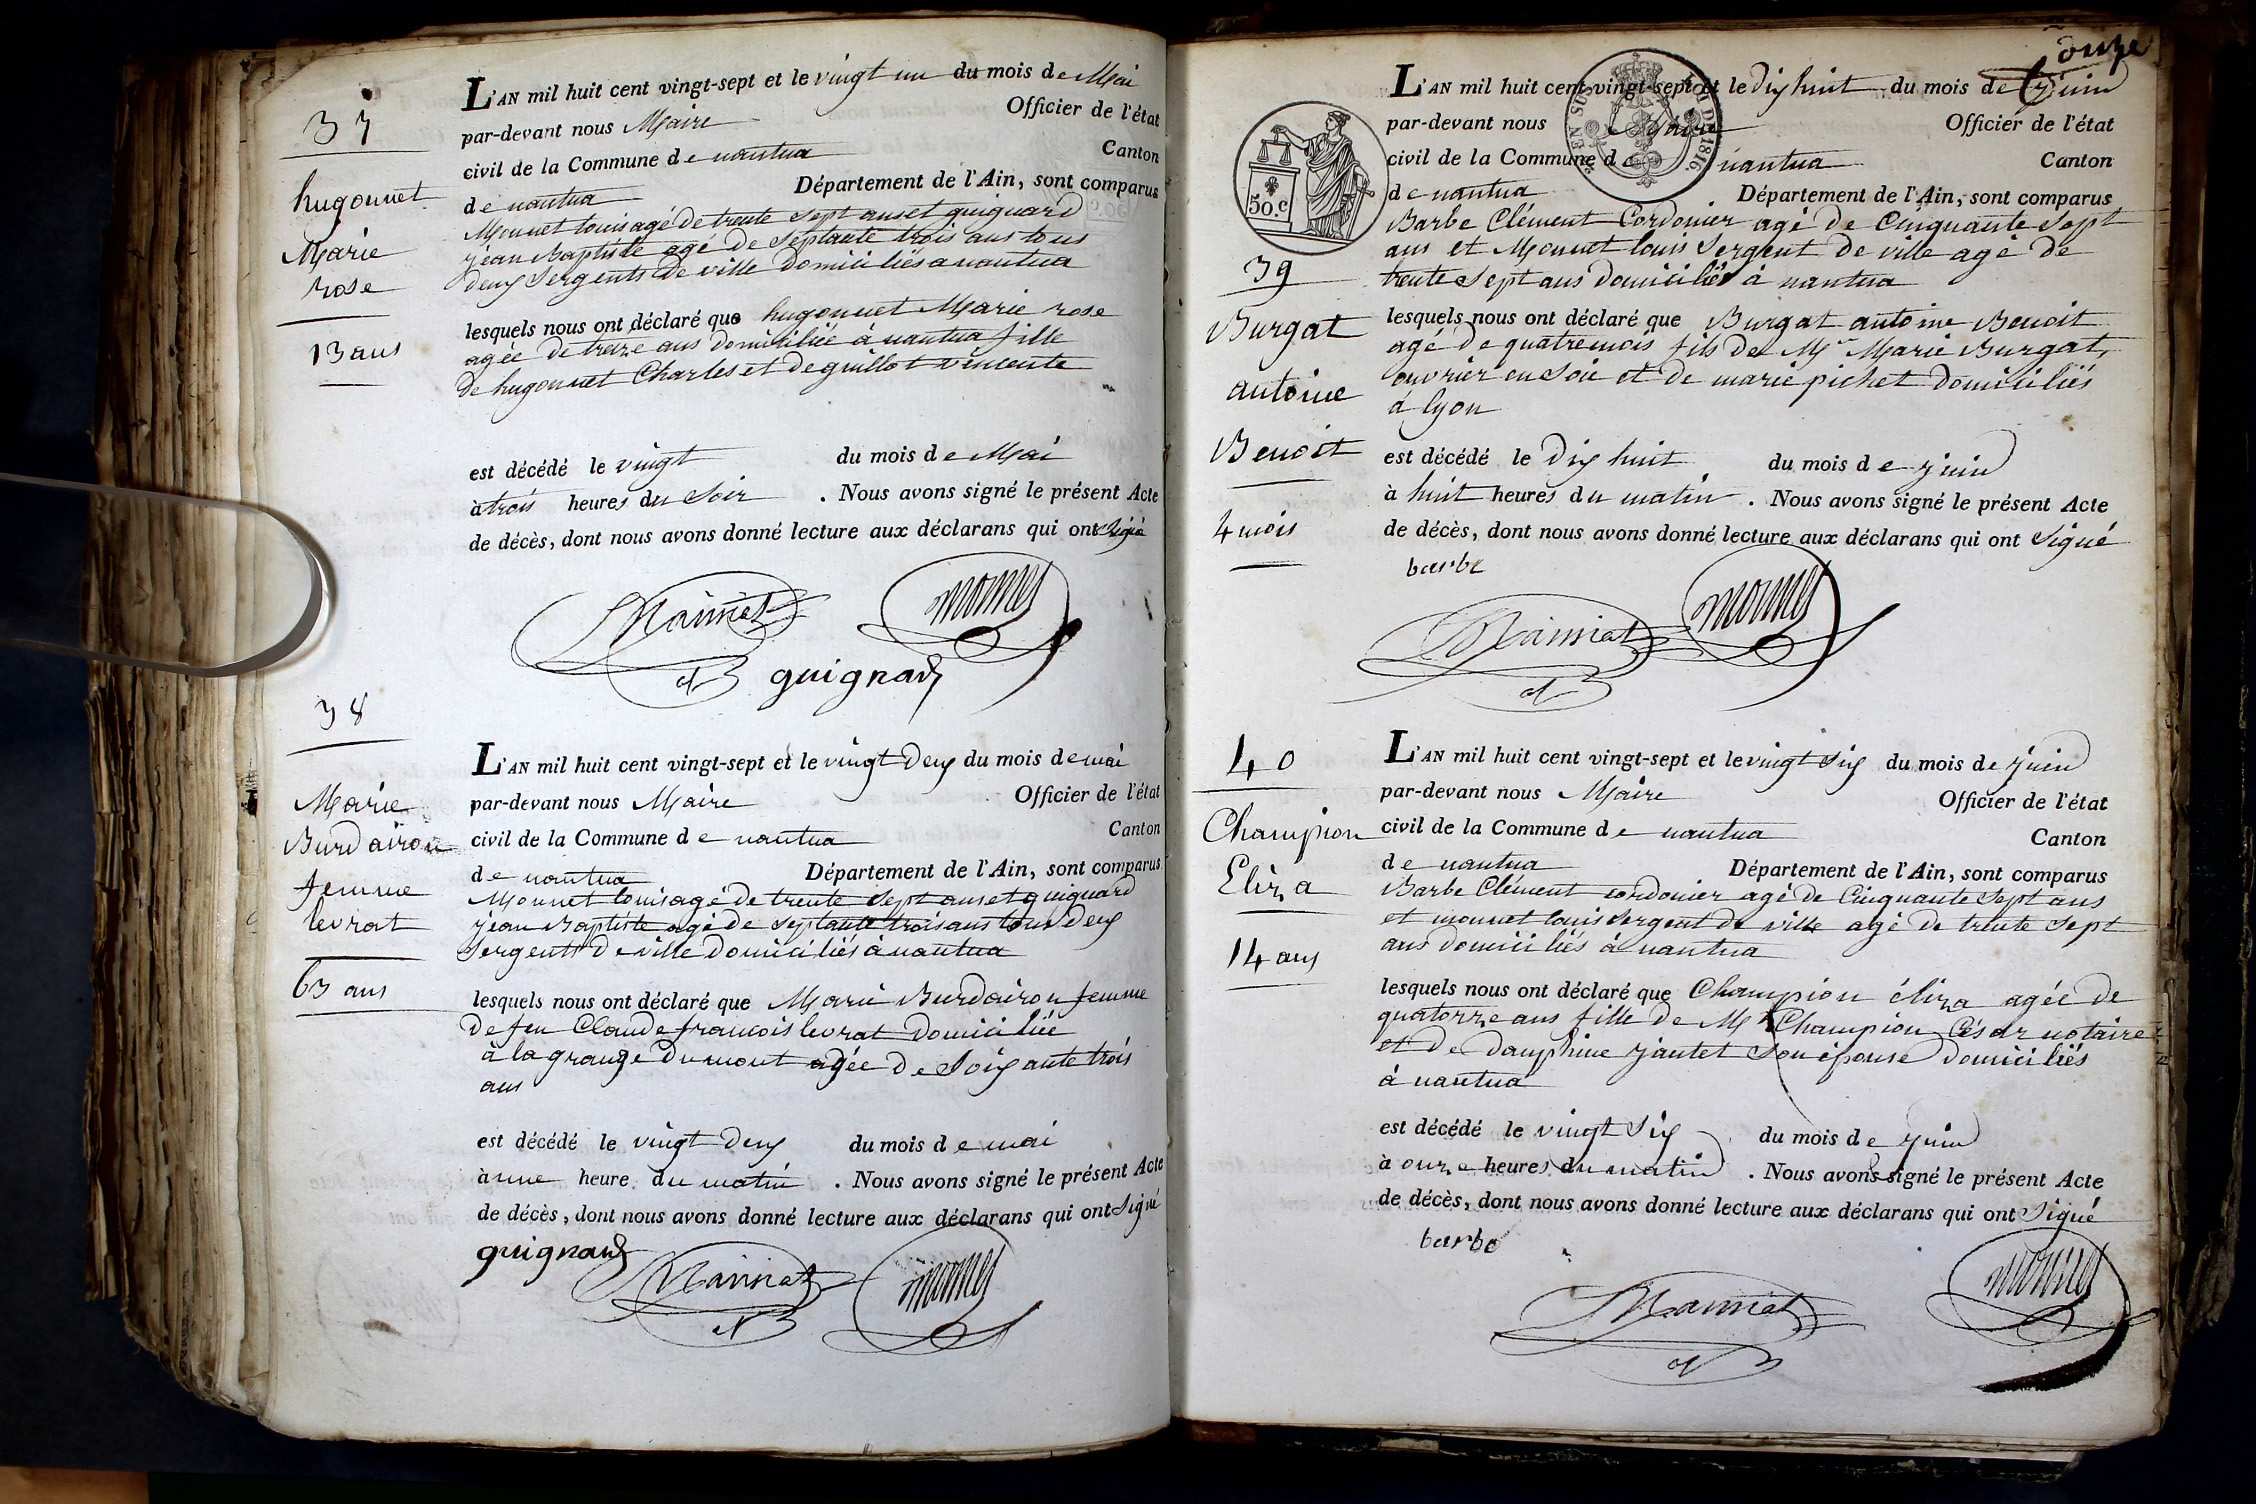 37
hugonnet
Marie
rose
13 ans
L'AN mil huit cent vingt-sept et le vingt un du mois de Mai
par-devant nous Maire Officier de l'état
civil de la Commune de nantua Canton
de nantua Département de l'Ain, sont comparus
Monnet louis agé de trente sept ans et guignard
jean Baptiste agé de septante trois ans tous
deux Sergents de ville domiciliés a nantua
lesquels nous ont déclaré que hugonnet Marie rose
agée de treize ans domiciliée à nantua fille
de hugonnet Charles et de guillot vincente
est décédé le vingt du mois de Mai
à trois heures du soir . Nous avons signé le présent Acte
de décès, dont nous avons donné lecture aux déclarans qui ont signé
monnet
guignard
38
Marie
Burdairon
femme
levrat
63 ans
L'AN mil huit cent vingt-sept et le vingt deux du mois de mai
par-devant nous Maire Officier de l'état
civil de la Commune de nantua Canton
de nantua Département de l'Ain, sont comparus
Monnet louis agé de trente sept ans et guignard
jean Baptiste agé de septante trois ans tous deux
sergents de ville domiciliés à nantua
lesquels nous ont déclaré que Marie Burdairon femme
de feu Claude francois levrat domiciliée
à la grange du mont agée de soixante trois
ans
est décédé le vingt deux du mois de mai
à une heure du matin . Nous avons signé le présent Acte
de décès, dont nous avons donné lecture aux déclarans qui ont signé
guignard monnet
onze
50.c
1816
39
Burgat
antoine
Benoit
4 mois
L'AN mil huit cent vingt-sept et le dix huit du mois de juin
par-devant nous Maire Officier de l'état
civil de la Commune de nantua Canton
de nantua Département de l'Ain, sont comparus
Barbe Clément Cordonier agé de Cinquante sept
ans et Monnet louis Sergent de ville agé de
trente sept ans domiciliés à nantua
lesquels nous ont déclaré que Burgat antoine Benoit
agé de quatre mois fils de Mr Marie Burgat,
ouvrier en soie et de marie pichet domiciliés
à lyon
est décédé le dix huit du mois de juin
à huit heures du matin . Nous avons signé le présent Acte
de décès, dont nous avons donné lecture aux déclarans qui ont signé
barbe
monnet
40
Champion
Eliza
14 ans
L'AN mil huit cent vingt-sept et le vingt six du mois de juin
par-devant nous Maire Officier de l'état
civil de la Commune de nantua Canton
de nantua Département de l'Ain, sont comparus
Barbe Clément cordonier agé de Cinquante sept ans
et monnet louis sergent de ville agé de trente sept
ans domiciliés à nantua
lesquels nous ont déclaré que Champion éliza agée de
quatorze ans fille de Mr Champion César notaire
et de dauphine jantet son épouse domiciliés
à nantua
est décédé le vingt six du mois de juin
à onze heures du matin . Nous avons signé le présent Acte
de décès, dont nous avons donné lecture aux déclarans qui ont signé
barbe
monnet